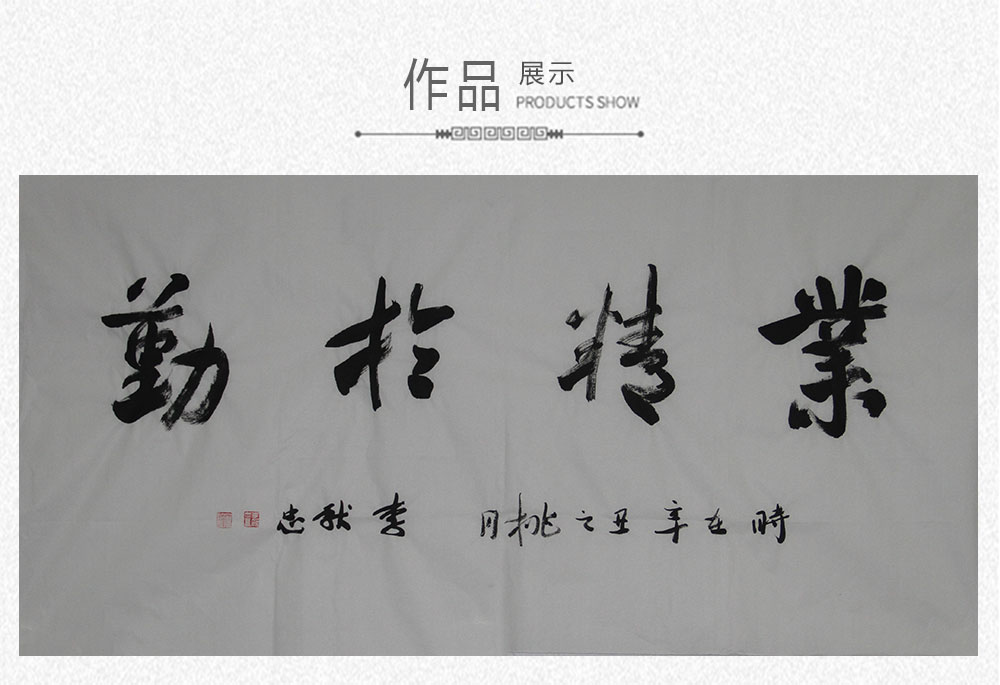 作品
展示
PRODUCTS SHOW
業精於勤
時在辛丑之桃月 李献忠